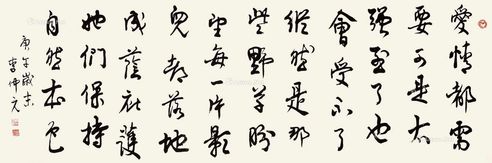 愛情都需
要可是太
强烈了也
會受不了
縱然是那
些野草盼
望每一片影
兒都落地
成蔭庇護
她們保持
自然本色
庚午歲末